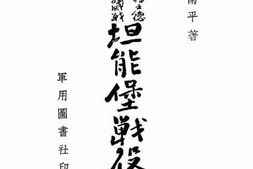 平著
坦能堡戰役
軍用圖書社印